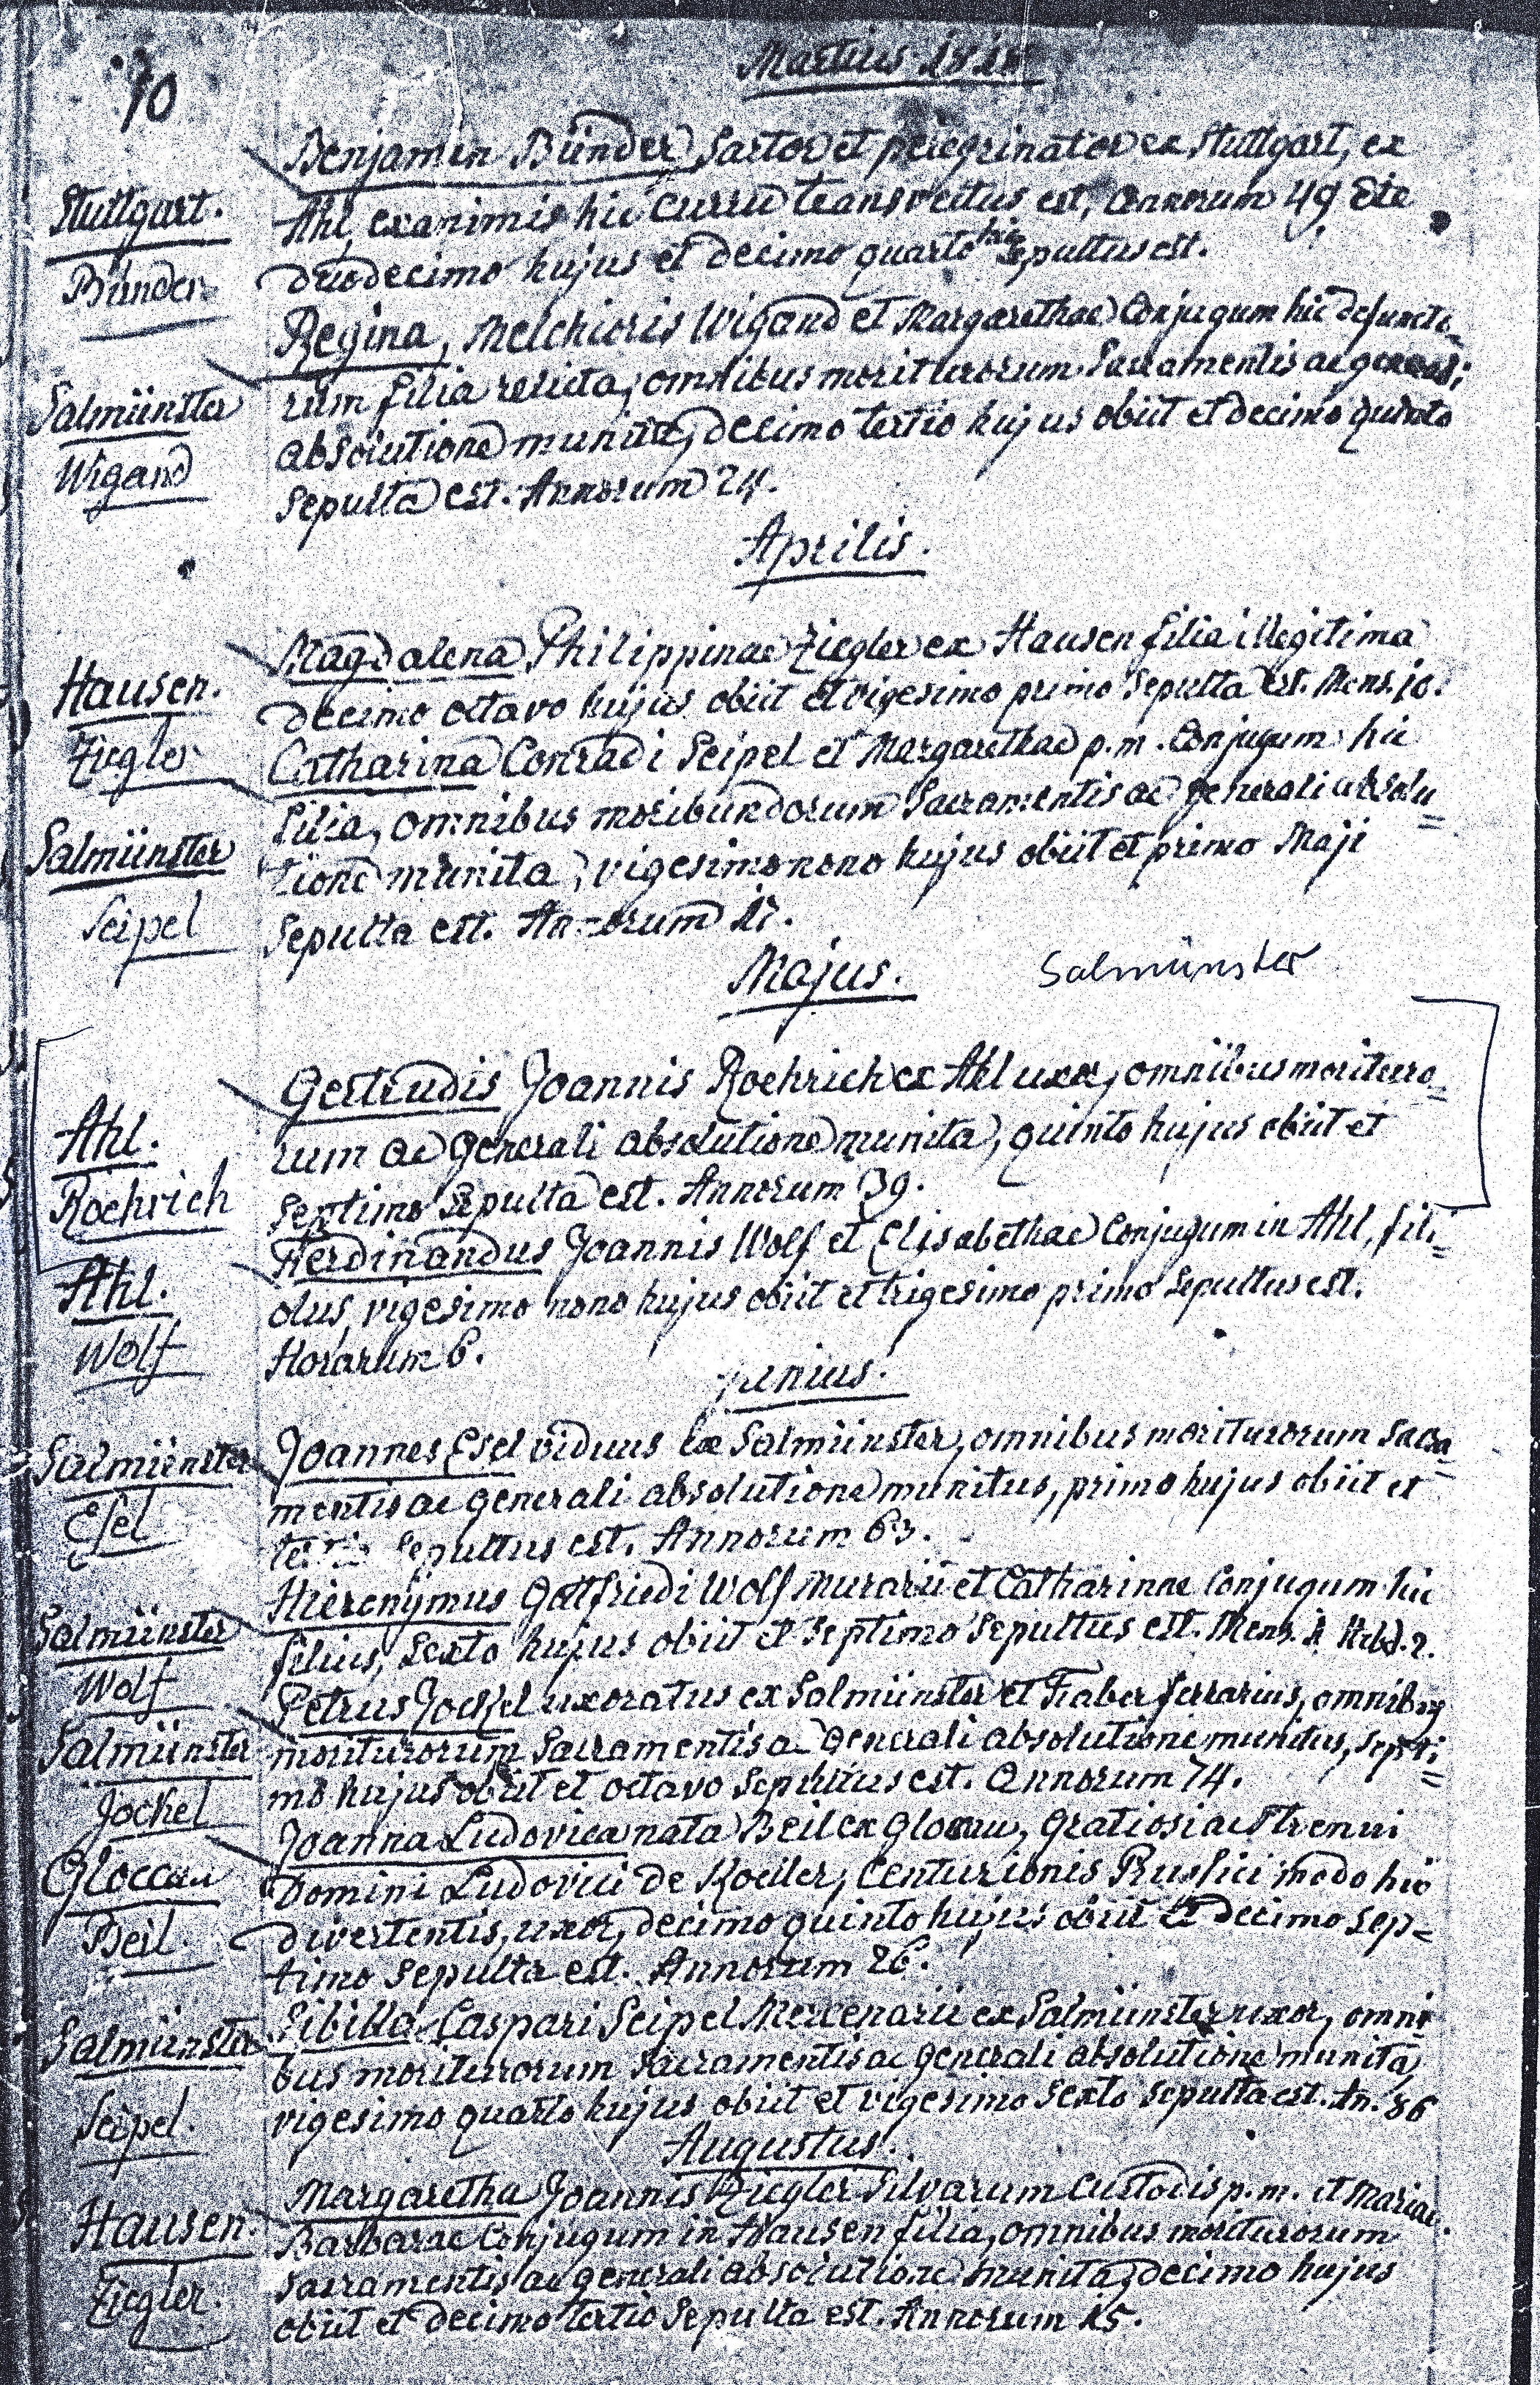 70
Martius 1818
Benjamin Bünder, Sartor et peregrinator ex Stuttgart, ex
Stuttgart.
Ahl, exanimis hic curru transvectus est, annorum 49 die
Bünder
duodecimo hujus et decimo quarto hic sepultus est.
Regina, Melchioris Wigand et Margarethae Conjugum hic defuncto-
Salmünster
rum filia relicta, omnibus moriturorum Sacramentis ac
Wigand
absolutione munita, decimo tertio hujus obiit et decimo quinto
sepulta est. Annorum 24.
Aprilis.
Hausen.
Magdalena Philippinae Ziegler ex Hausen filia illegitima
Ziegler
decimo octavo hujus obiit et vigesimo primo sepulta est. Mens. 10.
Catharina Conradi Seipel et Margarethae p.m. Conjugum hic
Salmünster
filia, omnibus moribundorum Sacramentis ac generali absolu=
Seipel
tione munita, vigesimo nono hujus obiit et primo Maji
sepulta est. Annorum 17.
Majus.
Salmünster
Ahl.
Gertrudis Joannis Roehrich ex Ahl uxor, omnibus morituro=
Roehrich
rum ac generali absolutione munita, quinto hujus obiit et
septimo sepulta est. Annorum 39.
Ahl.
Ferdinandus Joannis Wolf et Elisabethae Conjugum in Ahl, fili=
Wolf
olus, vigesimo nono hujus obiit et trigesimo primo sepultus est.
Horarum 6.
Junius.
Salmünster
Joannes Esel viduus ex Salmünster, omnibus moriturorum Sacra=
Esel
mentis ac generali absolutione munitus, primo hujus obiit et
tertio sepultus est. Annorum 63.
Salmünster
Hieronymus Gottfriedi Wolf Murarii et Catharinae Conjugum hic
Wolf
filius, sexto hujus obiit et septimo sepultus est. Mens. 1 Hebd. 2.
Salmünster
Petrus Jockel uxoratus ex Salmünster et Faber ferrarius, omnibus
Jockel
moriturorum Sacramentis ac generali absolutione munitus, septi=
mo hujus obiit et octavo sepultus est. Annorum 74.
Gloccau
Joanna Ludovica nata Beil ex Gloccau, Gratiosi ac Strenui
Beil.
Domini Ludovici de Koeller, Centurionis Russici modo hic
divertentis, uxor, decimo quinto hujus obiit et decimo sep=
timo sepulta est. Annorum 26.
Salmünster
Sibilla Caspari Seipel Mercenarii ex Salmünster uxor, omni
Seipel.
bus moriturorum Sacramentis ac generali absolutione munita,
vigesimo quarto hujus obiit et vigesimo sexto sepulta est. An. 86
Augustus.
Hausen.
Margaretha Joannis Ziegler Silvarum Custodis p.m. et Mariae
Ziegler.
Barbarae Conjugum in Hausen filia, omnibus moriturorum
Sacramentis ac generali absolutione munita, decimo hujus
obiit et decimo tertio sepulta est. Annorum 15.